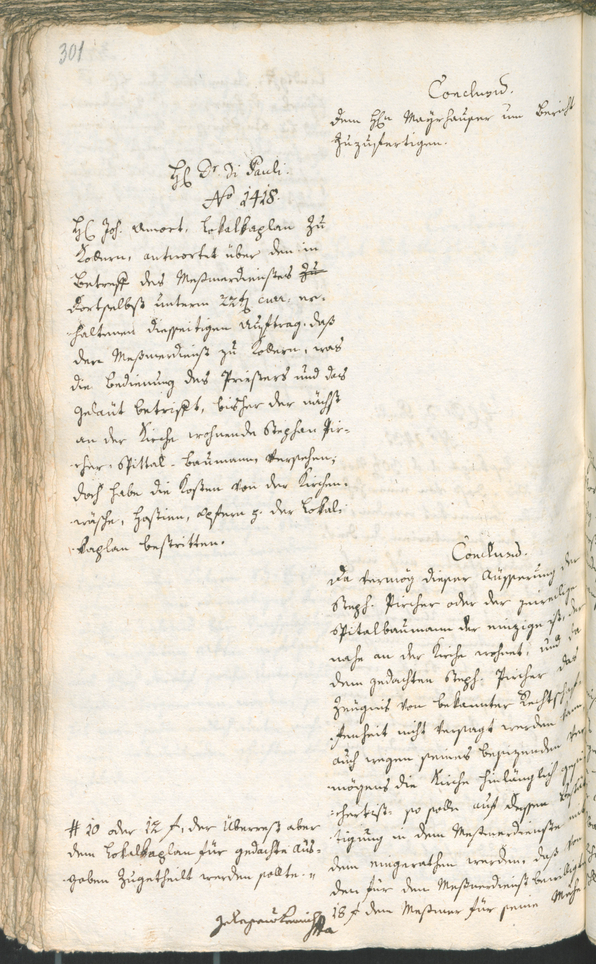 301
Conclusum.
dem H. Mayrhauser um Bericht
zuzufertigen.
H. Dr. Di Pauli.
No 1418.
H. Joh. Amort, Lokalkaplan zu
Kobern, antwortet über den in
Betreff des Meßmerdienstes zu
dortselbst unterm 22t cur. er-
haltenen diesseitigen Auftrag, daß
der Meßmerdienst zu Kobern, was
die Bedienung des Priesters und das
Geläut betrifft, bisher der nächst
an der Kirche wohnende Stephan Pir-
cher, Spittal-Baumann versehen;
doch habe die Kosten von der Kirchen-
wäsche, Hostien, Opfern p. der Lokal-
kaplan bestritten.
Conclusum.
Da vermög dieser Äusserung der
Steph. Pircher oder der zeiweilige
Spitalbaumann der einzige ist, der
nahe an der Kirche wohnet, und da
dem gedachten Steph. Pircher das
Zeugnis von bekannter Rechtschaf-
fenheit nicht versagt werden kann
auch wegen seines besizenden Ver-
mögens die Kirche hinlänglich gesi-
chert ist: so solle auf dessen Bestät-
tigung in dem Meßmerdienste mit
dem eingerathen werden, daß von
den für den Meßmerdienst bewilligten
18 f dem Meßmer für seine Mühe
# 10 oder 12 f, der Überrest aber
dem Lokalkaplan für gedachte Aus-
gaben zugetheilt werden sollte. "